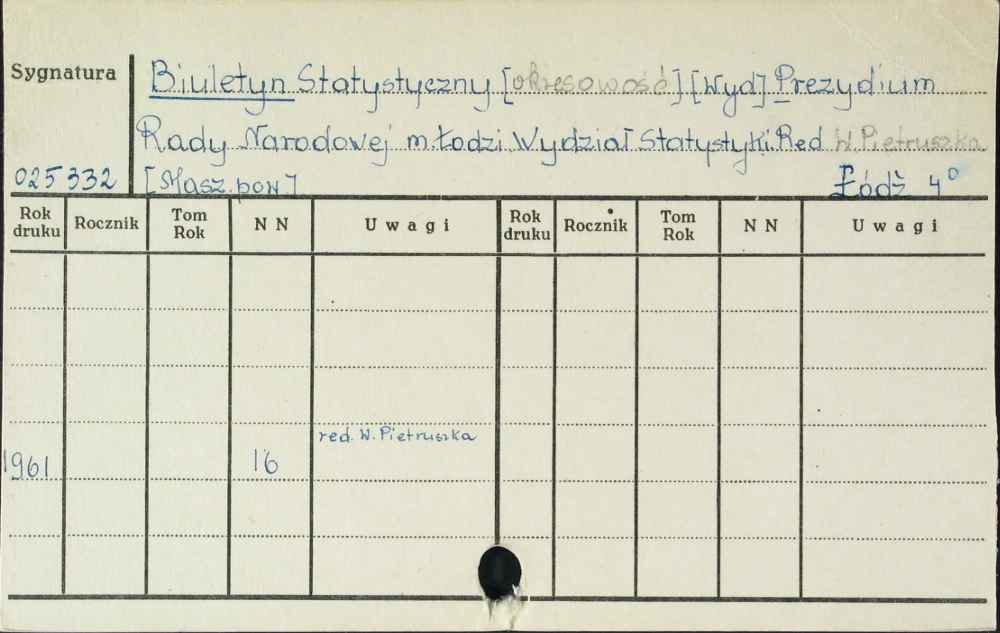 Sygnatura
Biuletyn Statystyczny [okresowość] [Wyd] Prezydium
Rady Narodowej m. Łodzi Wydział Statystyki. Red W. Pietruszka
025332 [Masz. pow] Łódź 4°
Rok druku Rocznik Tom Rok N N Uwagi Rok druku Rocznik Tom Rok N N Uwagi
red. W. Pietruszka
1961 16